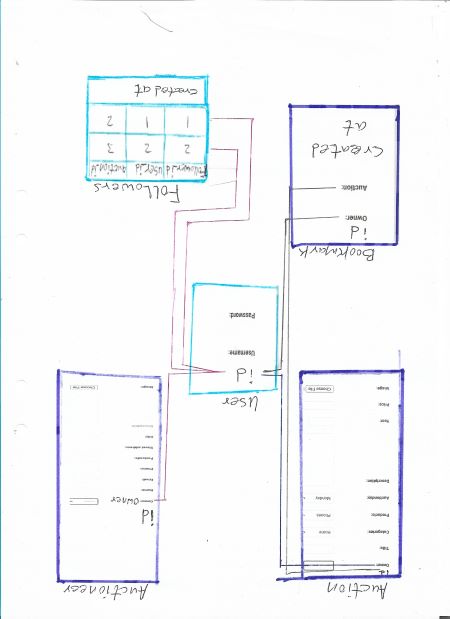 Auction
id
Owner:
Title:
Categories: Home
Products: Phones
Auctiondays: Monday
Description:
Year:
Price:
Image: Choose File
Auctioneer
id
Owner: Owner
Name:
Email:
Phone:
Postcode:
Street address:
City:
Description:
Image: Choose File
User
id
Username:
Password:
Bookmark
id
Owner:
Auction:
Created
at
Followers
Follower_id User_id Auction_id
2 2 3
1 1 2
created at